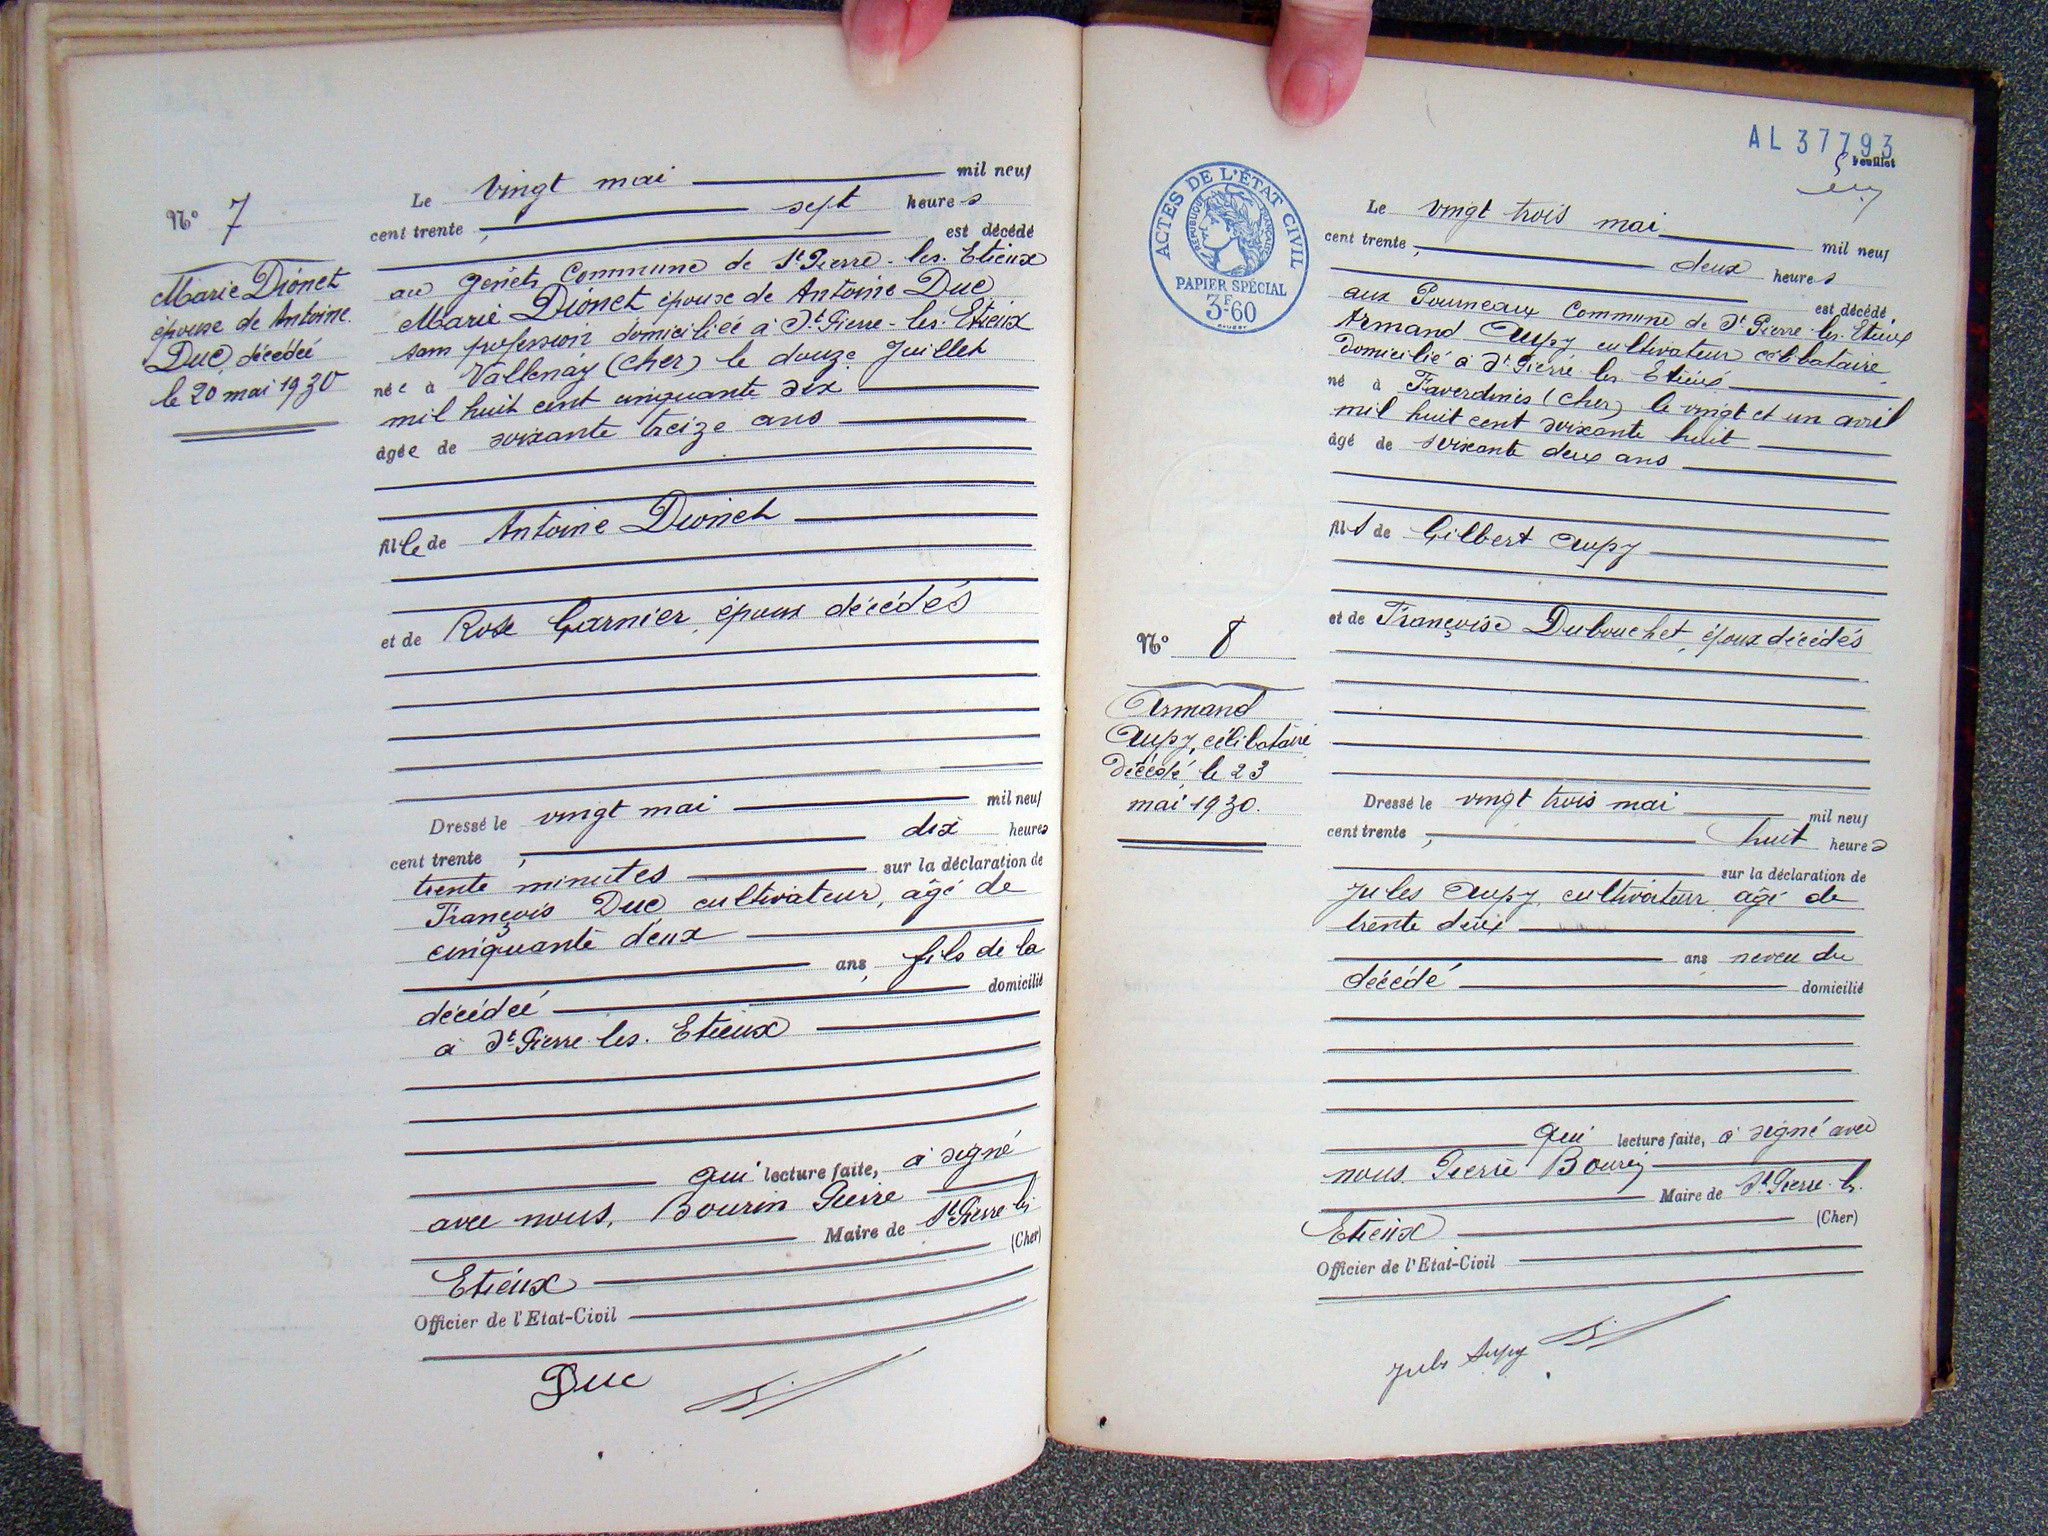 Nº 7
Marie Dionet
épouse de Antoine
Duc, décédée
le 20 mai 1930
Le vingt mai mil neuf
cent trente, sept heures
est décédé
au Genêts Commune de St Pierre-les-Etieux
Marie Dionet épouse de Antoine Duc
sans profession domiciliée à St Pierre-les-Etieux
née à Vallenay (Cher) le douze Juillet
mil huit cent cinquante six
âgée de soixante treize ans
fille de Antoine Dionet
et de Rose Garnier, époux décédés
Dressé le vingt mai mil neuf
cent trente, dix heures
trente minutes sur la déclaration de
François Duc cultivateur, âgé de
cinquante deux
ans, fils de la
décédée domicilié
à St Pierre-les-Etieux
qui lecture faite, a signé
avec nous, Bourin Pierre
Maire de St Pierre les
Etieux (Cher)
Officier de l'Etat-Civil
Duc
AL 37793
5 Feuillet
ACTES DE L'ÉTAT CIVIL
RÉPUBLIQUE FRANÇAISE
PAPIER SPÉCIAL
3F60
Nº 8
Armand
Aupy, célibataire
décédé le 23
mai 1930.
Le vingt trois mai mil neuf
cent trente, deux heures
est décédé,
aux Pourneaux Commune de St Pierre-les-Etieux
Armand Aupy cultivateur célibataire
domicilié à St Pierre les Etieux
né à Faverdines (Cher) le vingt et un avril
mil huit cent soixante huit
âgé de soixante deux ans
fils de Gilbert Aupy
et de Françoise Dubouchet, époux décédés
Dressé le vingt trois mai mil neuf
cent trente, huit heures
sur la déclaration de
Jules Aupy, cultivateur âgé de
trente deux
ans neveu du
décédé domicilié
qui lecture faite, a signé avec
nous Pierre Bourin
Maire de St Pierre-les-
Etieux (Cher)
Officier de l'Etat-Civil
Jules Aupy